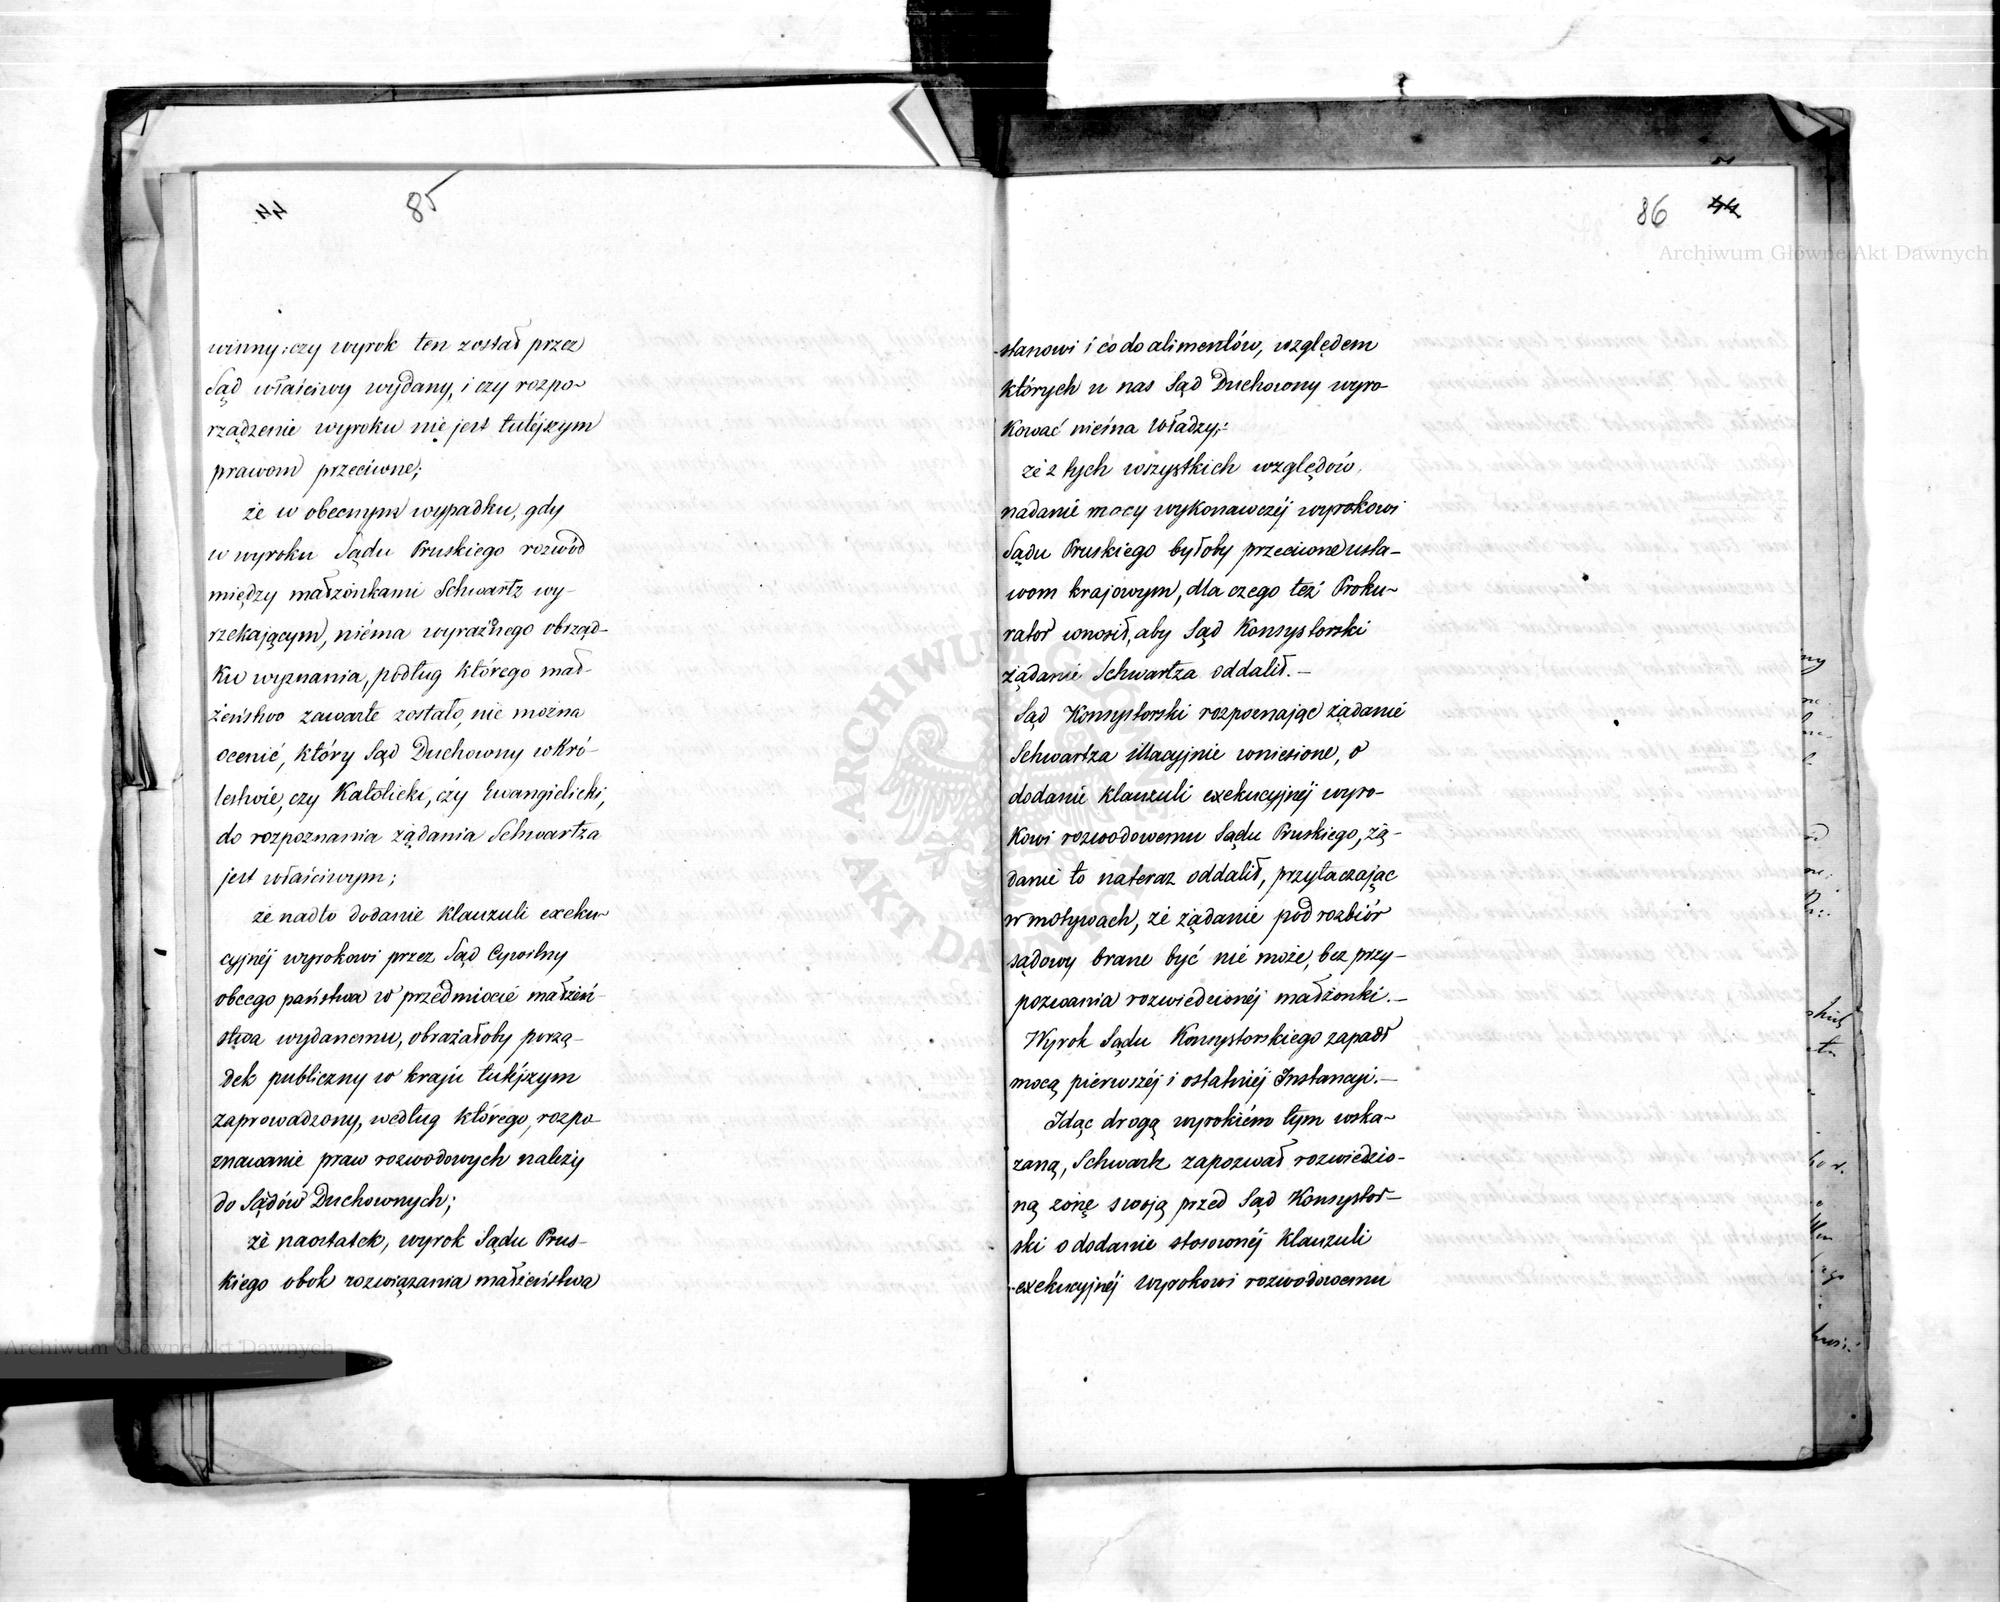 85
winny; czy wyrok ten został przez
Sąd właściwy wydany, i czy rozpo-
rządzenie wyroku nie jest tutéjszym
prawom przeciwne;
że w obecnym wypadku, gdy
w wyroku Sądu Pruskiego rozwód
między małżonkami Schwartz wy-
rzekającym, niéma wyraźnego obrząd-
ku wyznania, podług którego mał-
żeństwo zawarte zostało, nie można
ocenić, który Sąd Duchowny w Kró-
lestwie, czy Katolicki, czy Ewangielicki,
do rozpoznania żądania Schwartza
jest właściwym;
że nadto dodanie klauzuli exeku-
cyjnéj wyrokowi przez Sąd Cywilny
obcego państwa w przedmiocie małżeń-
stwa wydanemu, obrażałoby porzą-
dek publiczny w kraju tutéjszym
zaprowadzony, według którego, rozpo-
znawanie praw rozwodowych należy
do Sądów Duchownych;
że naostatek, wyrok Sądu Prus-
kiego obok rozwiązania małżeństwa
86 44
stanowi i co do alimentów, względem
których u nas Sąd Duchowny wyro-
kować niéma władzy;
że z tych wszystkich względów,
nadanie mocy wykonawczéj wyrokowi
Sądu Pruskiego byłoby przeciwne usta-
wom krajowym, dla czego też Proku-
rator wnosił, aby Sąd Konsystorski
żądanie Schwartza oddalił.—
Sąd Konsystorski rozpoznając żądanie
Schwartza illacyjnie wniesione, o
dodanie klauzuli exekucyjnéj wyro-
kowi rozwodowemu Sądu Pruskiego, żą-
danie to nateraz oddalił, przytaczając
w motywach, że żądanie pod rozbiór
sądowy brane być nie może, bez przy-
pozwania rozwiedzionéj małżonki.—
Wyrok Sądu Konsystorskiego zapadł
mocą pierwszéj i ostatniéj Instancyi.—
Idąc drogą wyrokiém tym wska-
zaną, Schwartz zapozwał rozwiedzio-
ną żonę swoją przed Sąd Konsystor-
ski o dodanie stosownéj klauzuli
exekucyjnéj wyrokowi rozwodowemu
Archiwum Główne Akt Dawnych
Archiwum Główne Akt Dawnych
ARCHIWUM GŁÓWNE AKT DAWNYCH